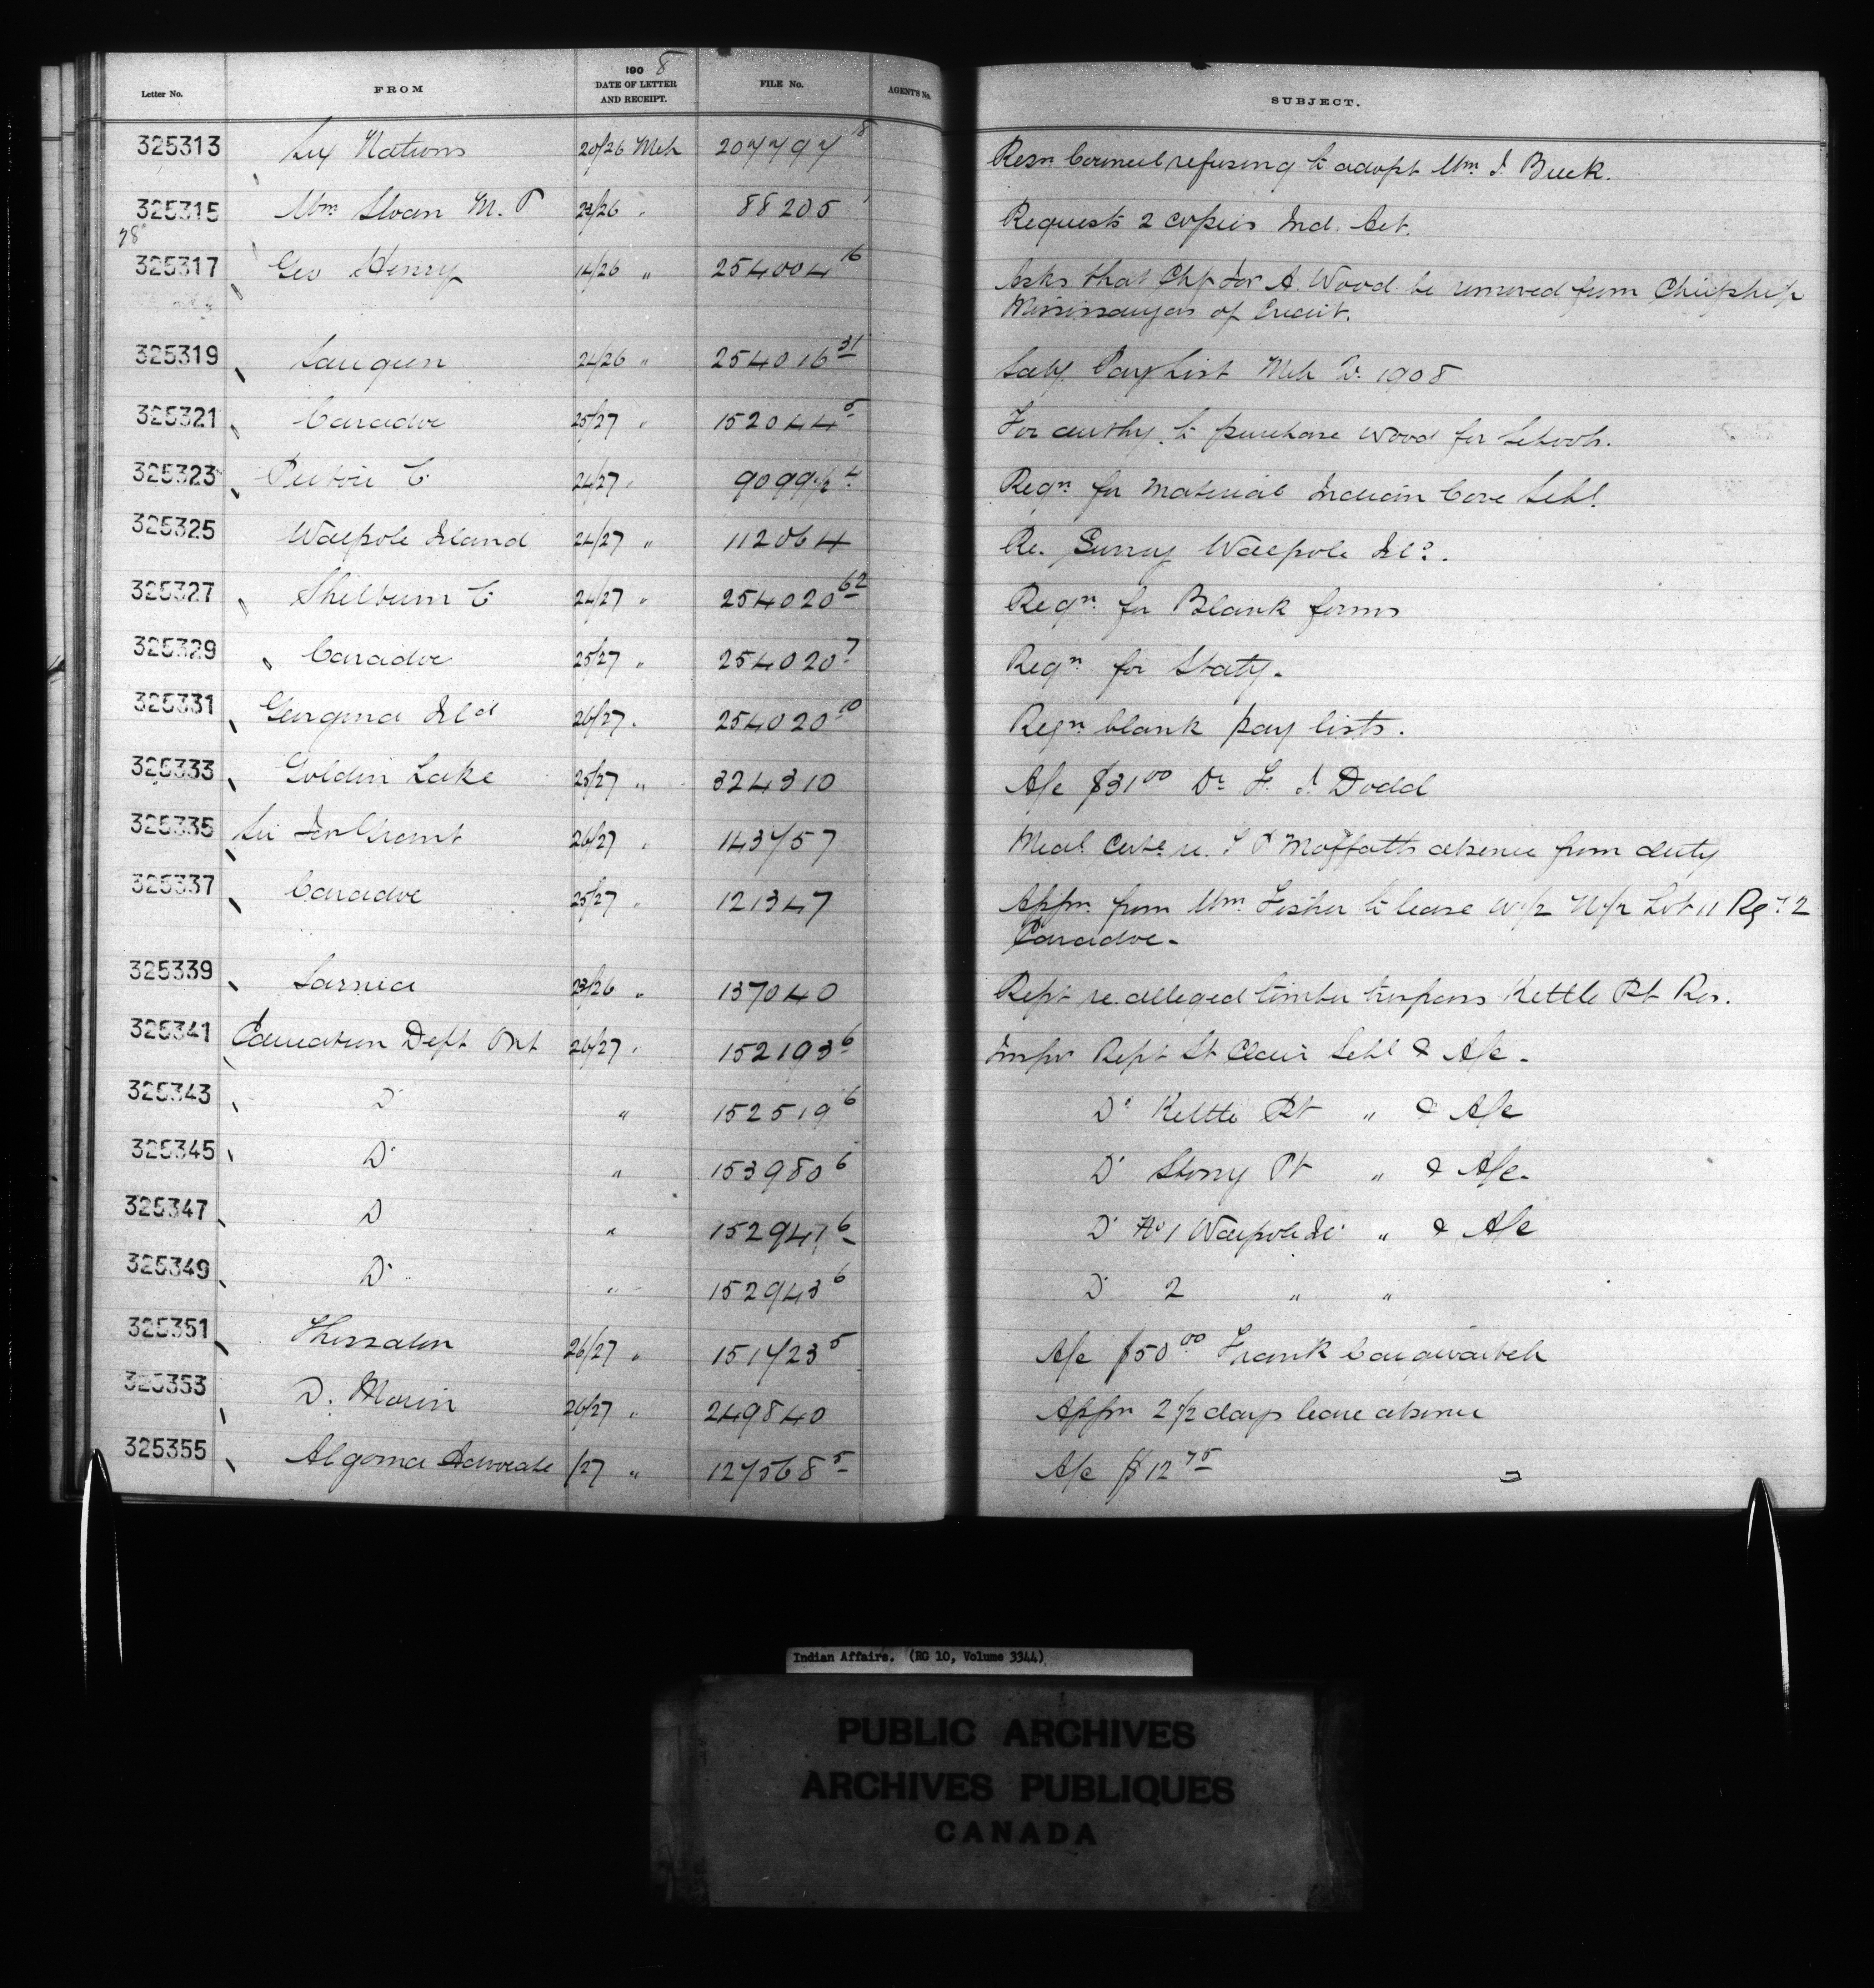 Letter No. FROM 190 8 DATE OF LETTER AND RECEIPT. FILE No. AGENT'S No. SUBJECT.
325313 Six Nations 20/26 Mch 207797 18 Resn Council refusing to adopt Wm J. Buck.
325315 Wm Sloan M.P 23/26 " 88205 1 Requests 2 copies Ind. Act.
78
325317 Geo Henry 14/26 " 254004 16 Asks that Chf A. Wood be removed from Chiefship
Mississaugas of Credit.
325319 Saugeen 24/26 " 254016 31 Saly Pay List Mch 1908
325321 Caradoc 25/27 " 152044 5 For authy. to purchase wood for Schools.
325323 Pictou C 24/27 " 9099 1/2 4 Reqn for material Indian Cove Schl
325325 Walpole Island 24/27 " 112064 Re. Survey Walpole Isld.
325327 Shelburn C 24/27 " 254020 62 Reqn for Blank forms
325329 Caradoc 25/27 " 254020 7 Reqn for Staty.
325331 Georgina Isld 26/27 " 254020 10 Reqn blank pay lists.
325333 Golden Lake 25/27 " 324310 A/c $31 00 Dr F. J. Dodd
325335 26/27 " 143757 Medl Cert re. Moffatts absence from duty
325337 Caradoc 25/27 " 121347 Appn from Wm Fisher to lease W 1/2 N 1/2 Lot 11 Rge 2
Caradoc.
325339 Sarnia 23/26 " 137040 Rept re alleged timber trespass Kettle Pt Res.
325341 Education Dept Ont 26/27 " 152193 6 Inspr Rept St Clair Schl & A/c.
325343 Do " 152519 6 Do Kettle Pt " & A/c
325345 Do " 153980 6 Do Stony Pt " & A/c.
325347 Do " 152947 6 Do No 1 Walpole Isl " & A/c
325349 Do " 152943 6 Do 2 " "
325351 Thessalon 26/27 " 151723 5 A/c $50 00 Frank
325353 D. Morin 26/27 " 249840 Appn 2 1/2 days leave absence
325355 Algoma Advocate /27 " 127568 5 A/c $12 75
Indian Affairs. (RG 10, Volume 3344)
PUBLIC ARCHIVES
ARCHIVES PUBLIQUES
CANADA